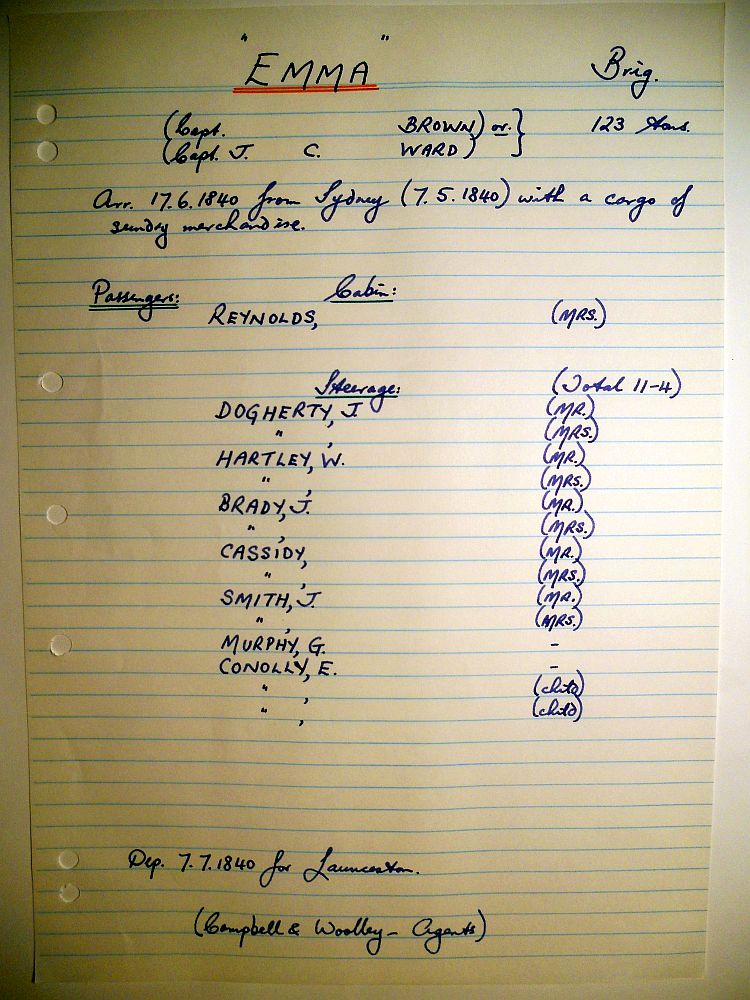 "EMMA" Brig.
(Capt. BROWN) or } 123 tons.
(Capt. J. C. WARD)
Arr. 17.6.1840 from Sydney (7.5.1840) with a cargo of
sundry merchandise.
Passengers: Cabin:
REYNOLDS, (MRS.)
Steerage: (Total 11-4)
DOGHERTY, J. (MR.)
" , (MRS.)
HARTLEY, W. (MR.)
" , (MRS.)
BRADY, J. (MR.)
" , (MRS.)
CASSIDY, (MR.)
" , (MRS.)
SMITH, J. (MR.)
" , (MRS.)
MURPHY, G. -
CONOLLY, E. -
" , (child)
" , (child)
Dep. 7.7.1840 for Launceston.
(Campbell & Woolley - Agents)